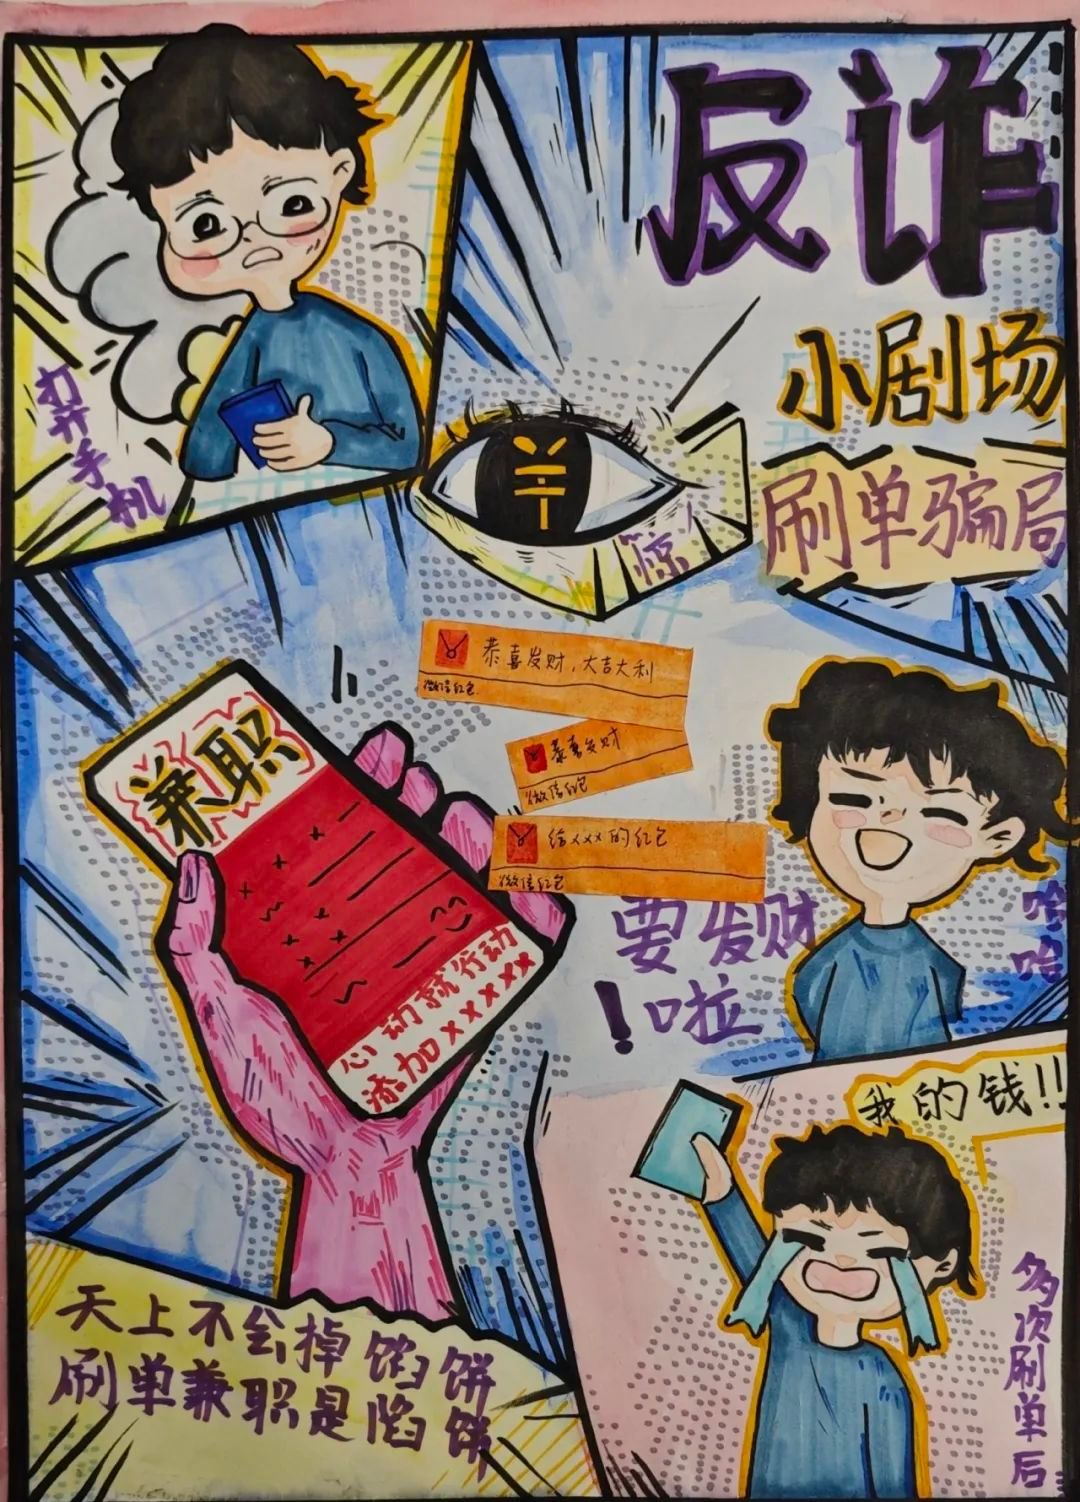 反诈
小剧场
刷单骗局
打开手机
惊
恭喜发财，大吉大利
微信红包
恭喜发财
微信红包
给xxx的红包
微信红包
兼职
心动就行动
添加xxxxx
要发财
啦！
哈哈
我的钱!!
多次刷单后
天上不会掉馅饼
刷单兼职是陷饼